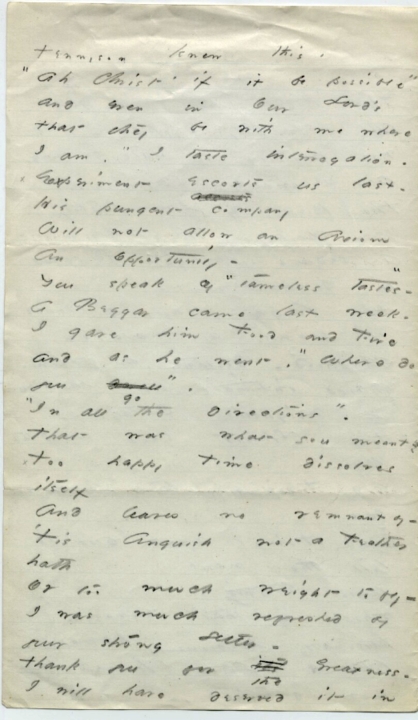 Tennyson knew this.
"Ah Christ - if it be possible"
And even in Our Lord's
"that they be with me where
I am." I taste interrogation.
Experiment escorts us last -
His pungent company
Will not allow an Axiom
An Opportunity -
You speak of "tameless tastes" -
A Beggar came last week -
I gave him Food and Fire
and as he went, "Where do
you go".
"In all the Directions".
That was what you meant
Too happy Time dissolves
itself
And leaves no remnant by -
'tis Anguish not a Feather
hath
Or too much weight to fly -
I was much refreshed by
your strong Letter -
Thank you for the Greatness -
I will have deserved it in